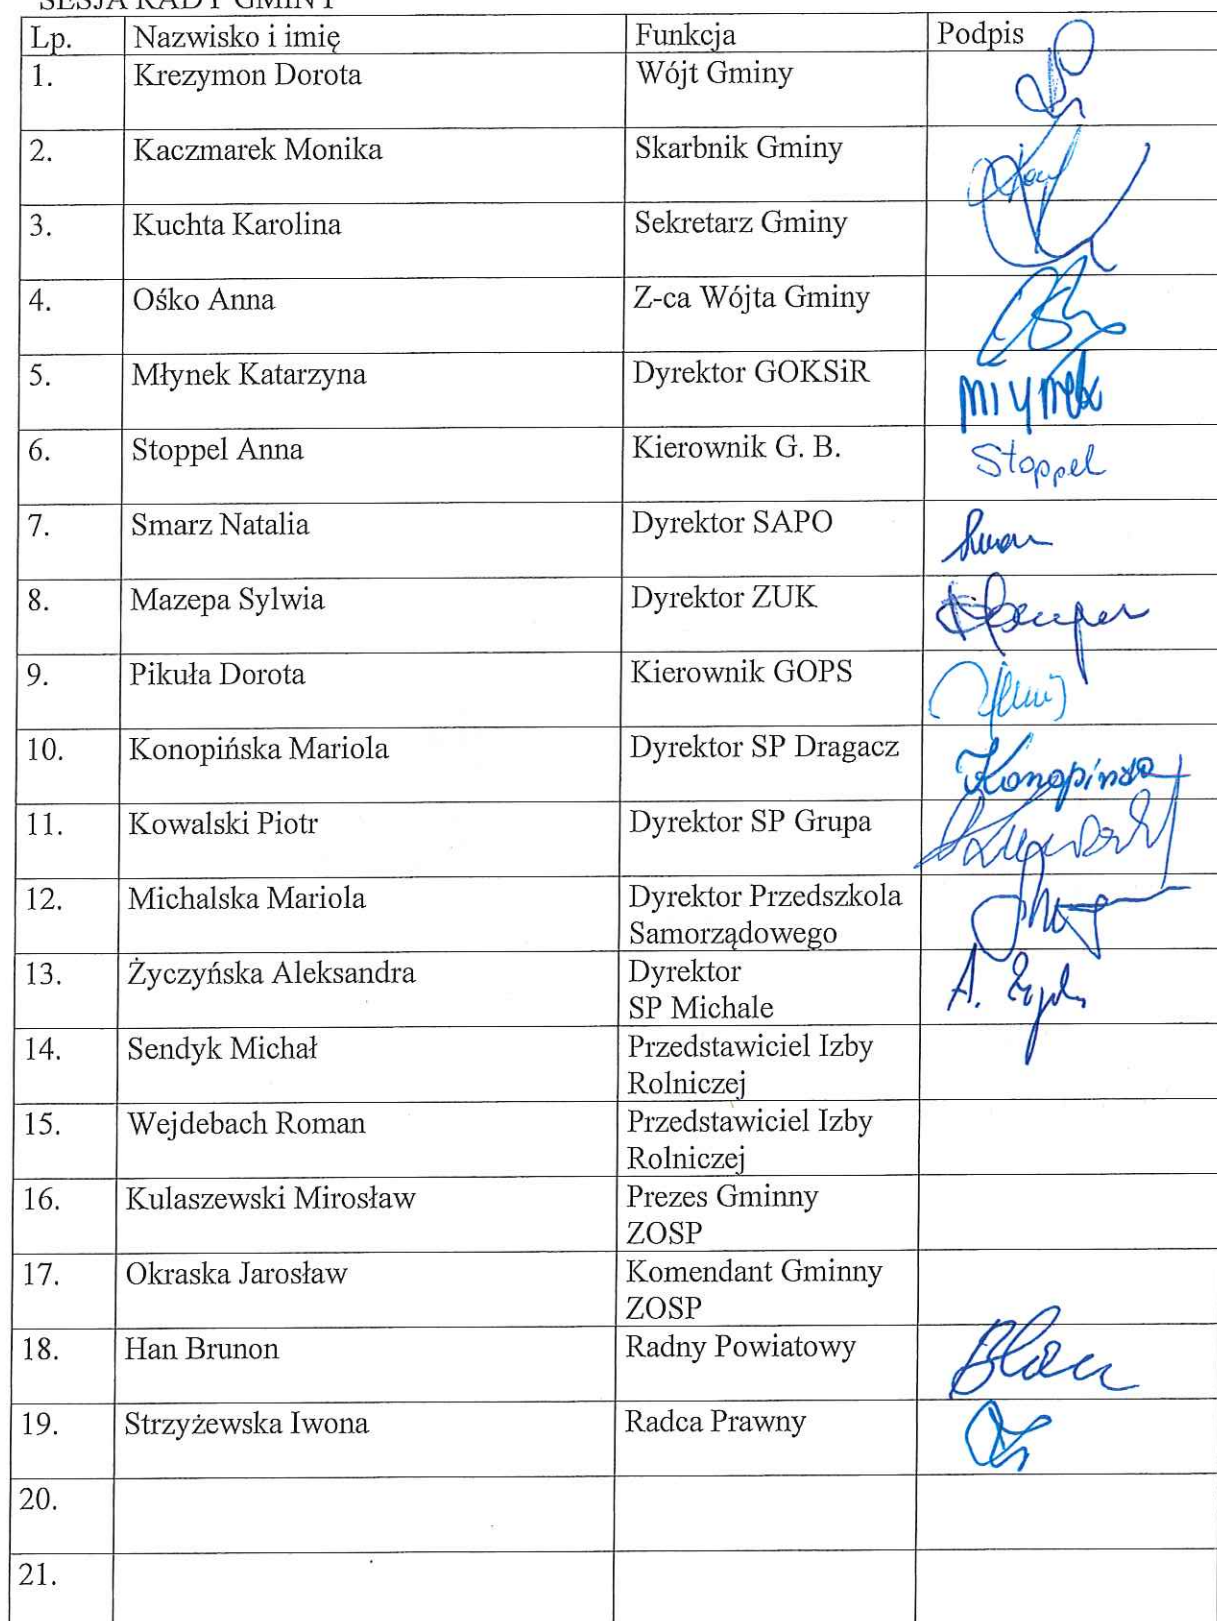 SESJA RADY GMINY
Lp. Nazwisko i imię Funkcja Podpis
1. Krezymon Dorota Wójt Gminy
2. Kaczmarek Monika Skarbnik Gminy
3. Kuchta Karolina Sekretarz Gminy
4. Ośko Anna Z-ca Wójta Gminy
5. Młynek Katarzyna Dyrektor GOKSiR Młynek
6. Stoppel Anna Kierownik G. B. Stoppel
7. Smarz Natalia Dyrektor SAPO
8. Mazepa Sylwia Dyrektor ZUK
9. Pikuła Dorota Kierownik GOPS
10. Konopińska Mariola Dyrektor SP Dragacz Konopińska
11. Kowalski Piotr Dyrektor SP Grupa
12. Michalska Mariola Dyrektor Przedszkola
Samorządowego
13. Życzyńska Aleksandra Dyrektor A.
SP Michale
14. Sendyk Michał Przedstawiciel Izby
Rolniczej
15. Wejdebach Roman Przedstawiciel Izby
Rolniczej
16. Kulaszewski Mirosław Prezes Gminny
ZOSP
17. Okraska Jarosław Komendant Gminny
ZOSP
18. Han Brunon Radny Powiatowy
19. Strzyżewska Iwona Radca Prawny
20.
21.